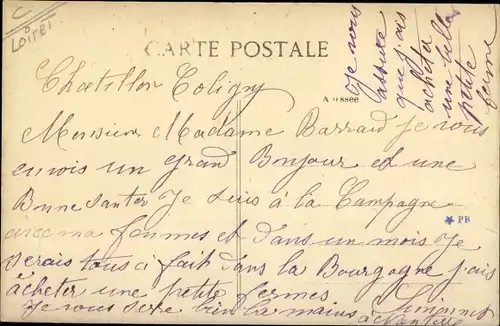 C
Loiret
CARTE POSTALE
Chatillon Coligny
Aussee
Monsieur Madame Barraud je vous
envois un Grand Bonjour et une
Bonne Santer Je suis à la Campagne
avec ma femmes et dans un mois Je
serais tous a fait dans la Bourgogne j'ais
achèter une petite fermes
je vous sere bien la mains
PB
Je vous
assure
que j'ais
acheta
une
petite
ferme